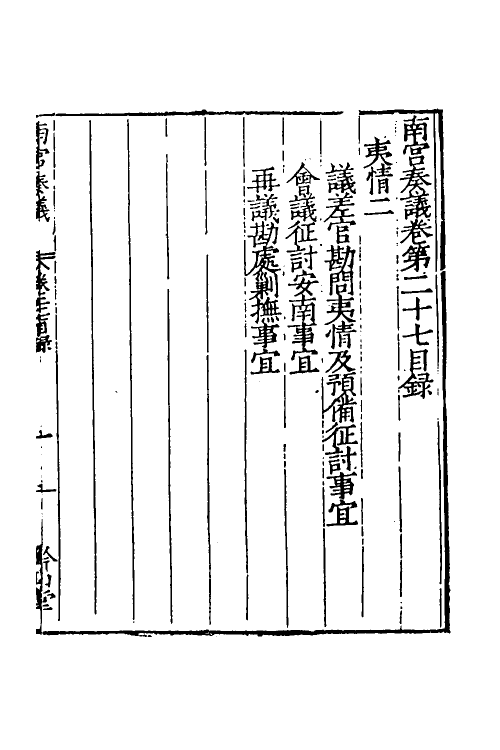 南宮奏議卷第二十七目録
夷情二
議差官勘問夷情及預備征討事宜
會議征討安南事宜
再議勘處剿撫事宜
南宮奏議
鈐山堂